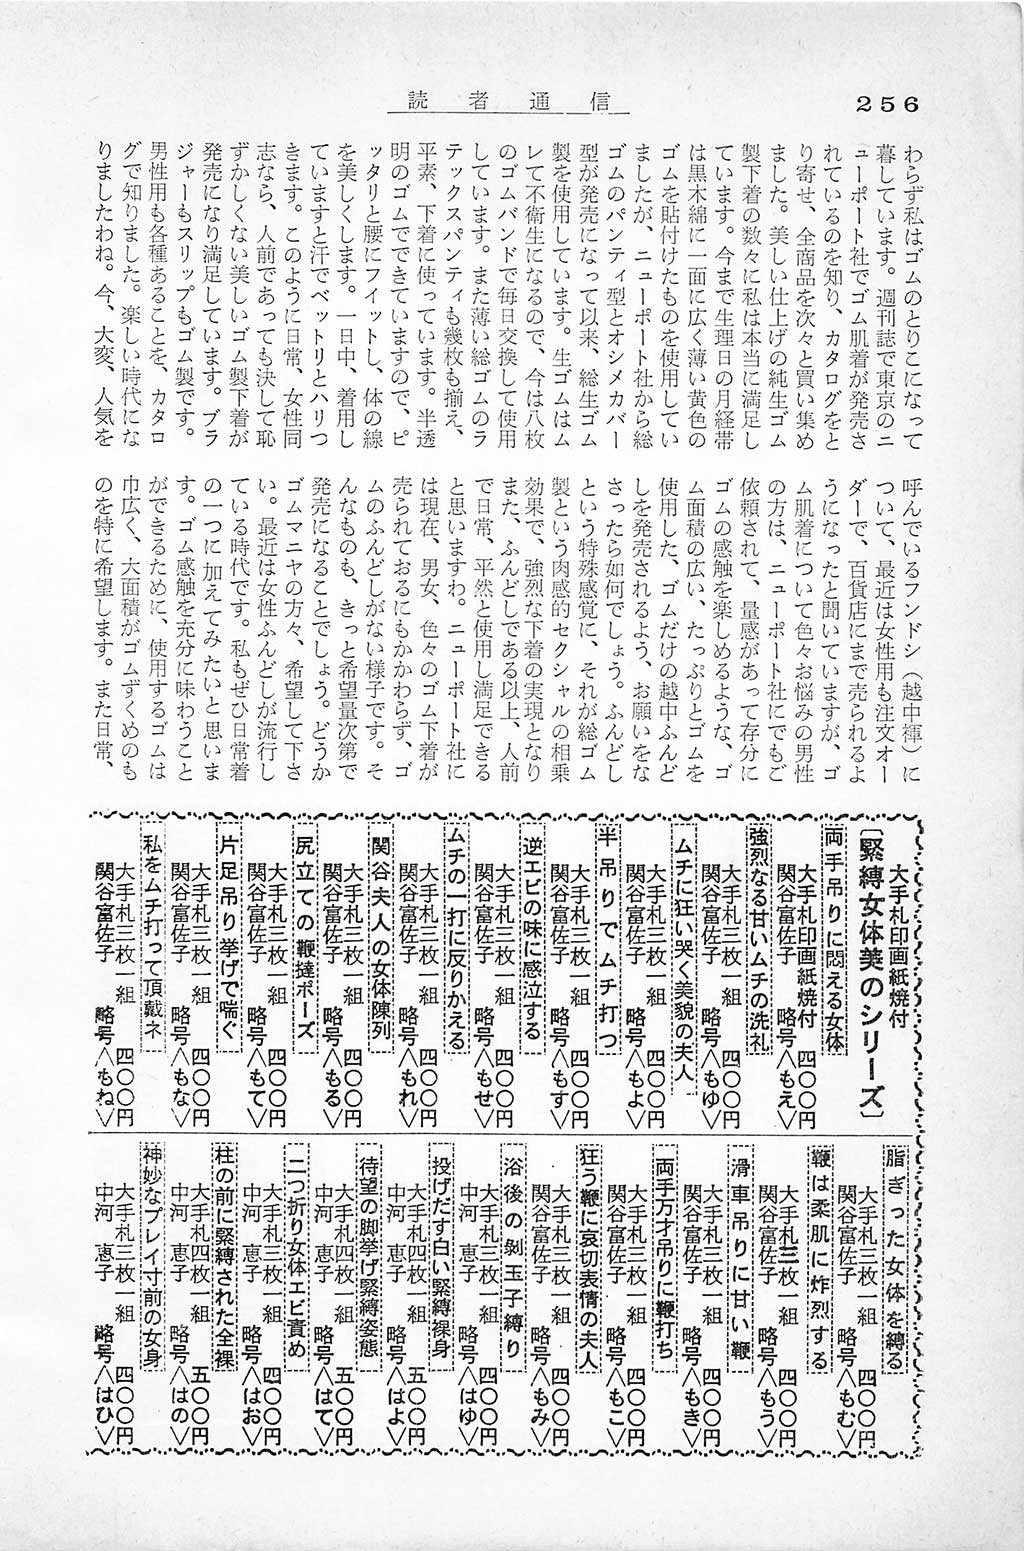 256
読者通信
わらず私はゴムのとりこになって
暮しています。週刊誌で東京のニ
ューポート社でゴム肌着が発売さ
れているのを知り、カタログをと
り寄せ、全商品を次々と買い集め
ました。美しい仕上げの純生ゴム
製下着の数々に私は本当に満足し
ています。今まで生理日の月経帯
は黒木綿に一面に広く薄い黄色の
ゴムを貼付けたものを使用してい
ましたが、ニューポート社から総
ゴムのパンティ型とオシメカバー
型が発売になって以来、総生ゴム
製を使用しています。生ゴムはム
レて不衛生になるので、今は八枚
のゴムバンドで毎日交換して使用
しています。また薄い総ゴムのラ
テックスパンティも幾枚も揃え、
平素、下着に使っています。半透
明のゴムでできていますので、ピ
ッタリと腰にフィットし、体の線
を美しくします。一日中、着用し
ていますと汗でベットリとハリつ
きます。このように日常、女性同
志なら、人前であっても決して恥
ずかしくない美しいゴム製下着が
発売になり満足しています。ブラ
ジャーもスリップもゴム製です。
男性用も各種あることを、カタロ
グで知りました。楽しい時代にな
りましたわね。今、大変、人気を
呼んでいるフンドシ（越中褌）に
ついて、最近は女性用も注文オー
ダーで、百貨店にまで売られるよ
うになったと聞いていますが、ゴ
ム肌着について色々お悩みの男性
の方は、ニューポート社にでもご
依頼されて、量感があって存分に
ゴムの感触を楽しめるような、ゴ
ム面積の広い、たっぷりとゴムを
使用した、ゴムだけの越中ふんど
しを発売されるよう、お願いをな
さったら如何でしょう。ふんどし
という特殊感覚に、それが総ゴム
製という肉感的セクシャルの相乗
効果で、強烈な下着の実現となり
また、ふんどしである以上、人前
で日常、平然と使用し満足できる
と思いますわ。ニューポート社に
は現在、男女、色々のゴム下着が
売られておるにもかかわらず、ゴ
ムのふんどしがない様子です。そ
んなものも、きっと希望量次第で
発売になることでしょう。どうか
ゴムマニヤの方々、希望して下さ
い。最近は女性ふんどしが流行し
ている時代です。私もぜひ日常着
の一つに加えてみたいと思いま
す。ゴム感触を充分に味わうこと
ができるために、使用するゴムは
巾広く、大面積がゴムずくめのも
のを特に希望します。また日常、
大手札印画紙焼付
〔緊縛女体美のシリーズ〕
両手吊りに悶える女体
大手札印画紙焼付　四〇〇円
関谷富佐子　略号〈もえ〉
強烈なる甘いムチの洗礼
大手札三枚一組　四〇〇円
関谷富佐子　略号〈もゆ〉
ムチに狂い哭く美貌の夫人
大手札三枚一組　四〇〇円
関谷富佐子　略号〈もよ〉
半吊りでムチ打つ
大手札三枚一組　四〇〇円
関谷富佐子　略号〈もす〉
逆エビの味に感泣する
大手札三枚一組　四〇〇円
関谷富佐子　略号〈もせ〉
ムチの一打に反りかえる
大手札三枚一組　四〇〇円
関谷富佐子　略号〈もれ〉
関谷夫人の女体陳列
大手札三枚一組　四〇〇円
関谷富佐子　略号〈もる〉
尻立ての鞭撻ポーズ
大手札三枚一組　四〇〇円
関谷富佐子　略号〈もて〉
片足吊り挙げで喘ぐ
大手札三枚一組　四〇〇円
関谷富佐子　略号〈もな〉
私をムチ打って頂戴ネ
大手札三枚一組　四〇〇円
関谷富佐子　略号〈もね〉
脂ぎった女体を縛る
大手札三枚一組　四〇〇円
関谷富佐子　略号〈もむ〉
鞭は柔肌に炸烈する
大手札三枚一組　四〇〇円
関谷富佐子　略号〈もう〉
滑車吊りに甘い鞭
大手札三枚一組　四〇〇円
関谷富佐子　略号〈もき〉
両手万才吊りに鞭打ち
大手札三枚一組　四〇〇円
関谷富佐子　略号〈もこ〉
狂う鞭に哀切表情の夫人
大手札三枚一組　四〇〇円
関谷富佐子　略号〈もみ〉
浴後の剝玉子縛り
大手札三枚一組　四〇〇円
中河恵子　略号〈はゆ〉
投げだす白い緊縛裸身
大手札四枚一組　五〇〇円
中河恵子　略号〈はよ〉
待望の脚挙げ緊縛姿態
大手札四枚一組　五〇〇円
中河恵子　略号〈はて〉
二つ折り女体エビ責め
大手札三枚一組　四〇〇円
中河恵子　略号〈はお〉
柱の前に緊縛された全裸
大手札四枚一組　五〇〇円
中河恵子　略号〈はの〉
神妙なプレイ寸前の女身
大手札三枚一組　四〇〇円
中河恵子　略号〈はひ〉